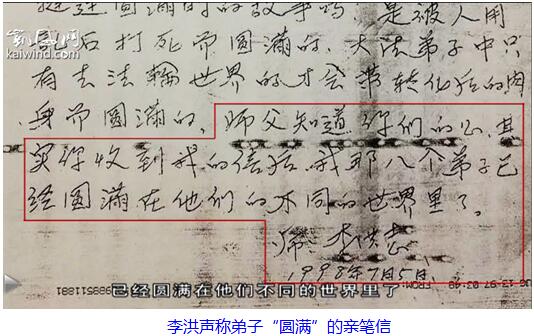 凯风网
kaiwind.com
圆满时的故事吗，是被人用
乱石打死而圆满的，大法弟子中只
有去法轮世界的才会带转化后的肉
身而圆满的，师父知道你们的心，其
实你收到我的信后，我那八个弟子已
经圆满在他们的不同的世界里了。
师 李洪志
1998年7月5日
已经圆满在他们不同的世界里了
李洪声称弟子“圆满”的亲笔信